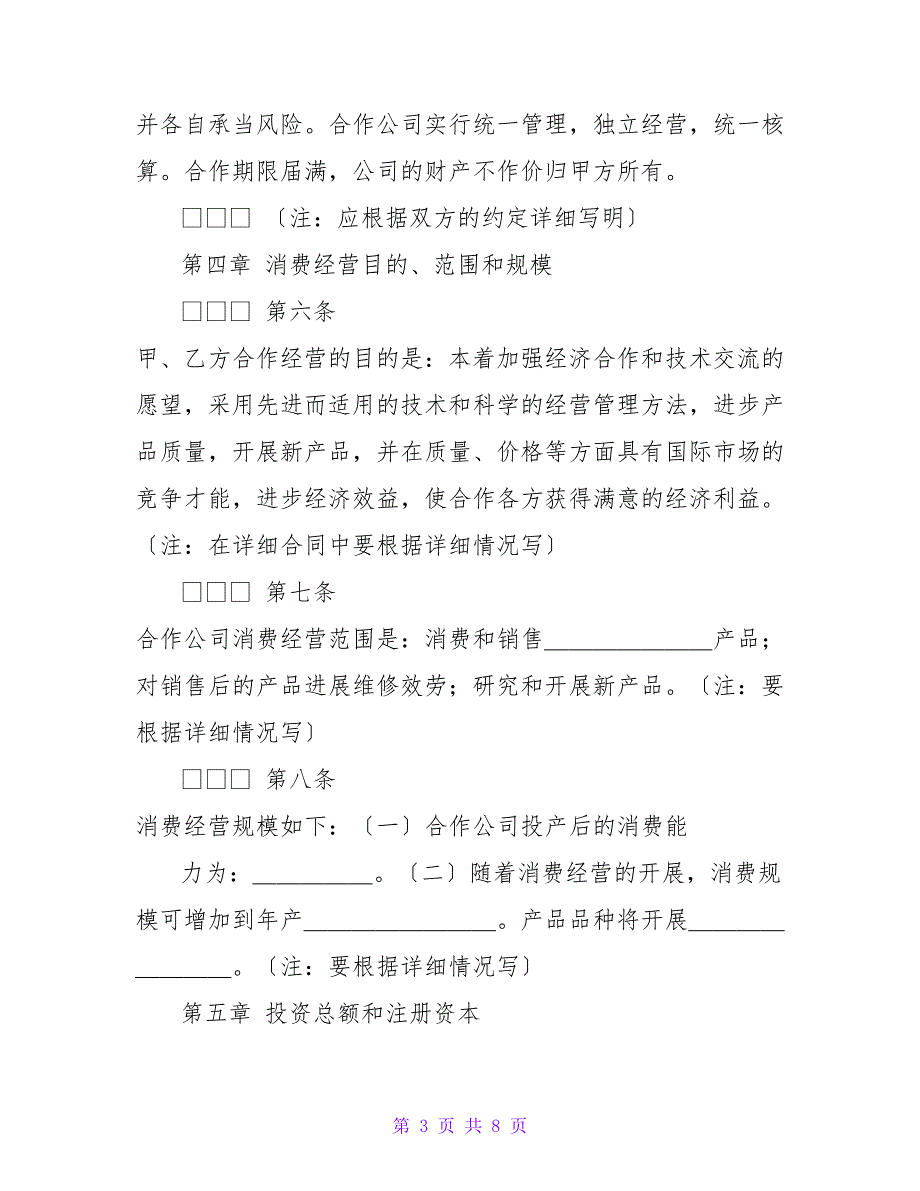 并各自承当风险。合作公司实行统一管理，独立经营，统一核
算。合作期限届满，公司的财产不作价归甲方所有。
□□□ 〔注：应根据双方的约定详细写明〕
第四章 消费经营目的、范围和规模
□□□ 第六条
甲、乙方合作经营的目的是：本着加强经济合作和技术交流的
愿望，采用先进而适用的技术和科学的经营管理方法，进步产
品质量，开展新产品，并在质量、价格等方面具有国际市场的
竞争才能，进步经济效益，使合作各方获得满意的经济利益。
〔注：在详细合同中要根据详细情况写〕
□□□ 第七条
合作公司消费经营范围是：消费和销售______________产品；
对销售后的产品进展维修效劳；研究和开展新产品。〔注：要
根据详细情况写〕
□□□ 第八条
消费经营规模如下：〔一〕合作公司投产后的消费能
力为：__________。〔二〕随着消费经营的开展，消费规
模可增加到年产________________。产品品种将开展________
________。〔注：要根据详细情况写〕
第五章 投资总额和注册资本
第 3 页 共 8 页